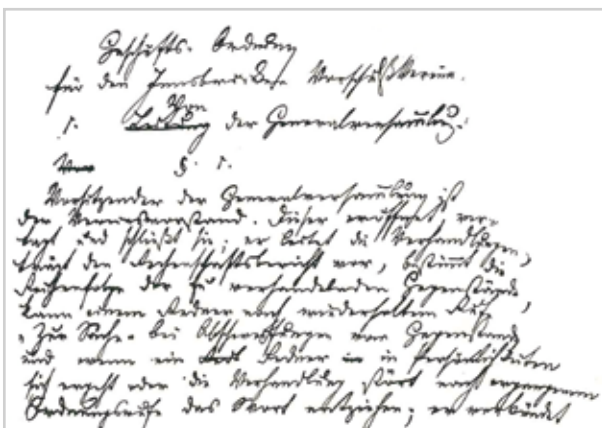 Geschäfts-Ordnung
für den Innsbrucker Vorschußverein.
1. Von Leitung der Generalversammlung.
Von § 1.
Vorsitzender der Generalversammlung ist
der Vereinsvorstand. Dieser eröffnet, ver-
tagt und schließt sie; er leitet die Verhandlungen,
trägt den Rechenschaftsbericht vor, bestimmt die
Reihenfolge der zu verhandelnden Gegenstände,
kann einem Redner nach wiederholtem Rufe
"Zur Sache" bei Abschweifungen vom Gegenstande
und wenn ein Redner in Persönlichkeiten
sich ergeht oder die Verhandlung stört nach ergangenem
Ordnungsrufe das Wort entziehen; er verkündet